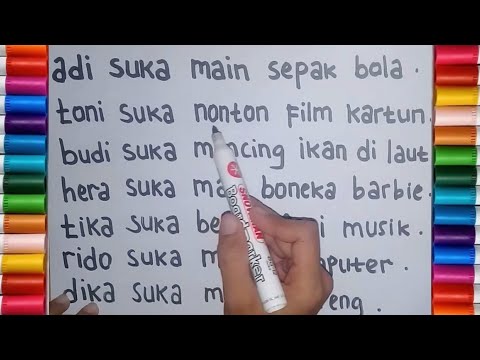 adi suka main sepak bola.
toni suka nonton film kartun.
budi suka mancing ikan di laut
hera suka ma boneka barbie.
tika suka be i musik.
rido suka m mputer.
dika suka m eng.
SNOWMAN
Board-marker